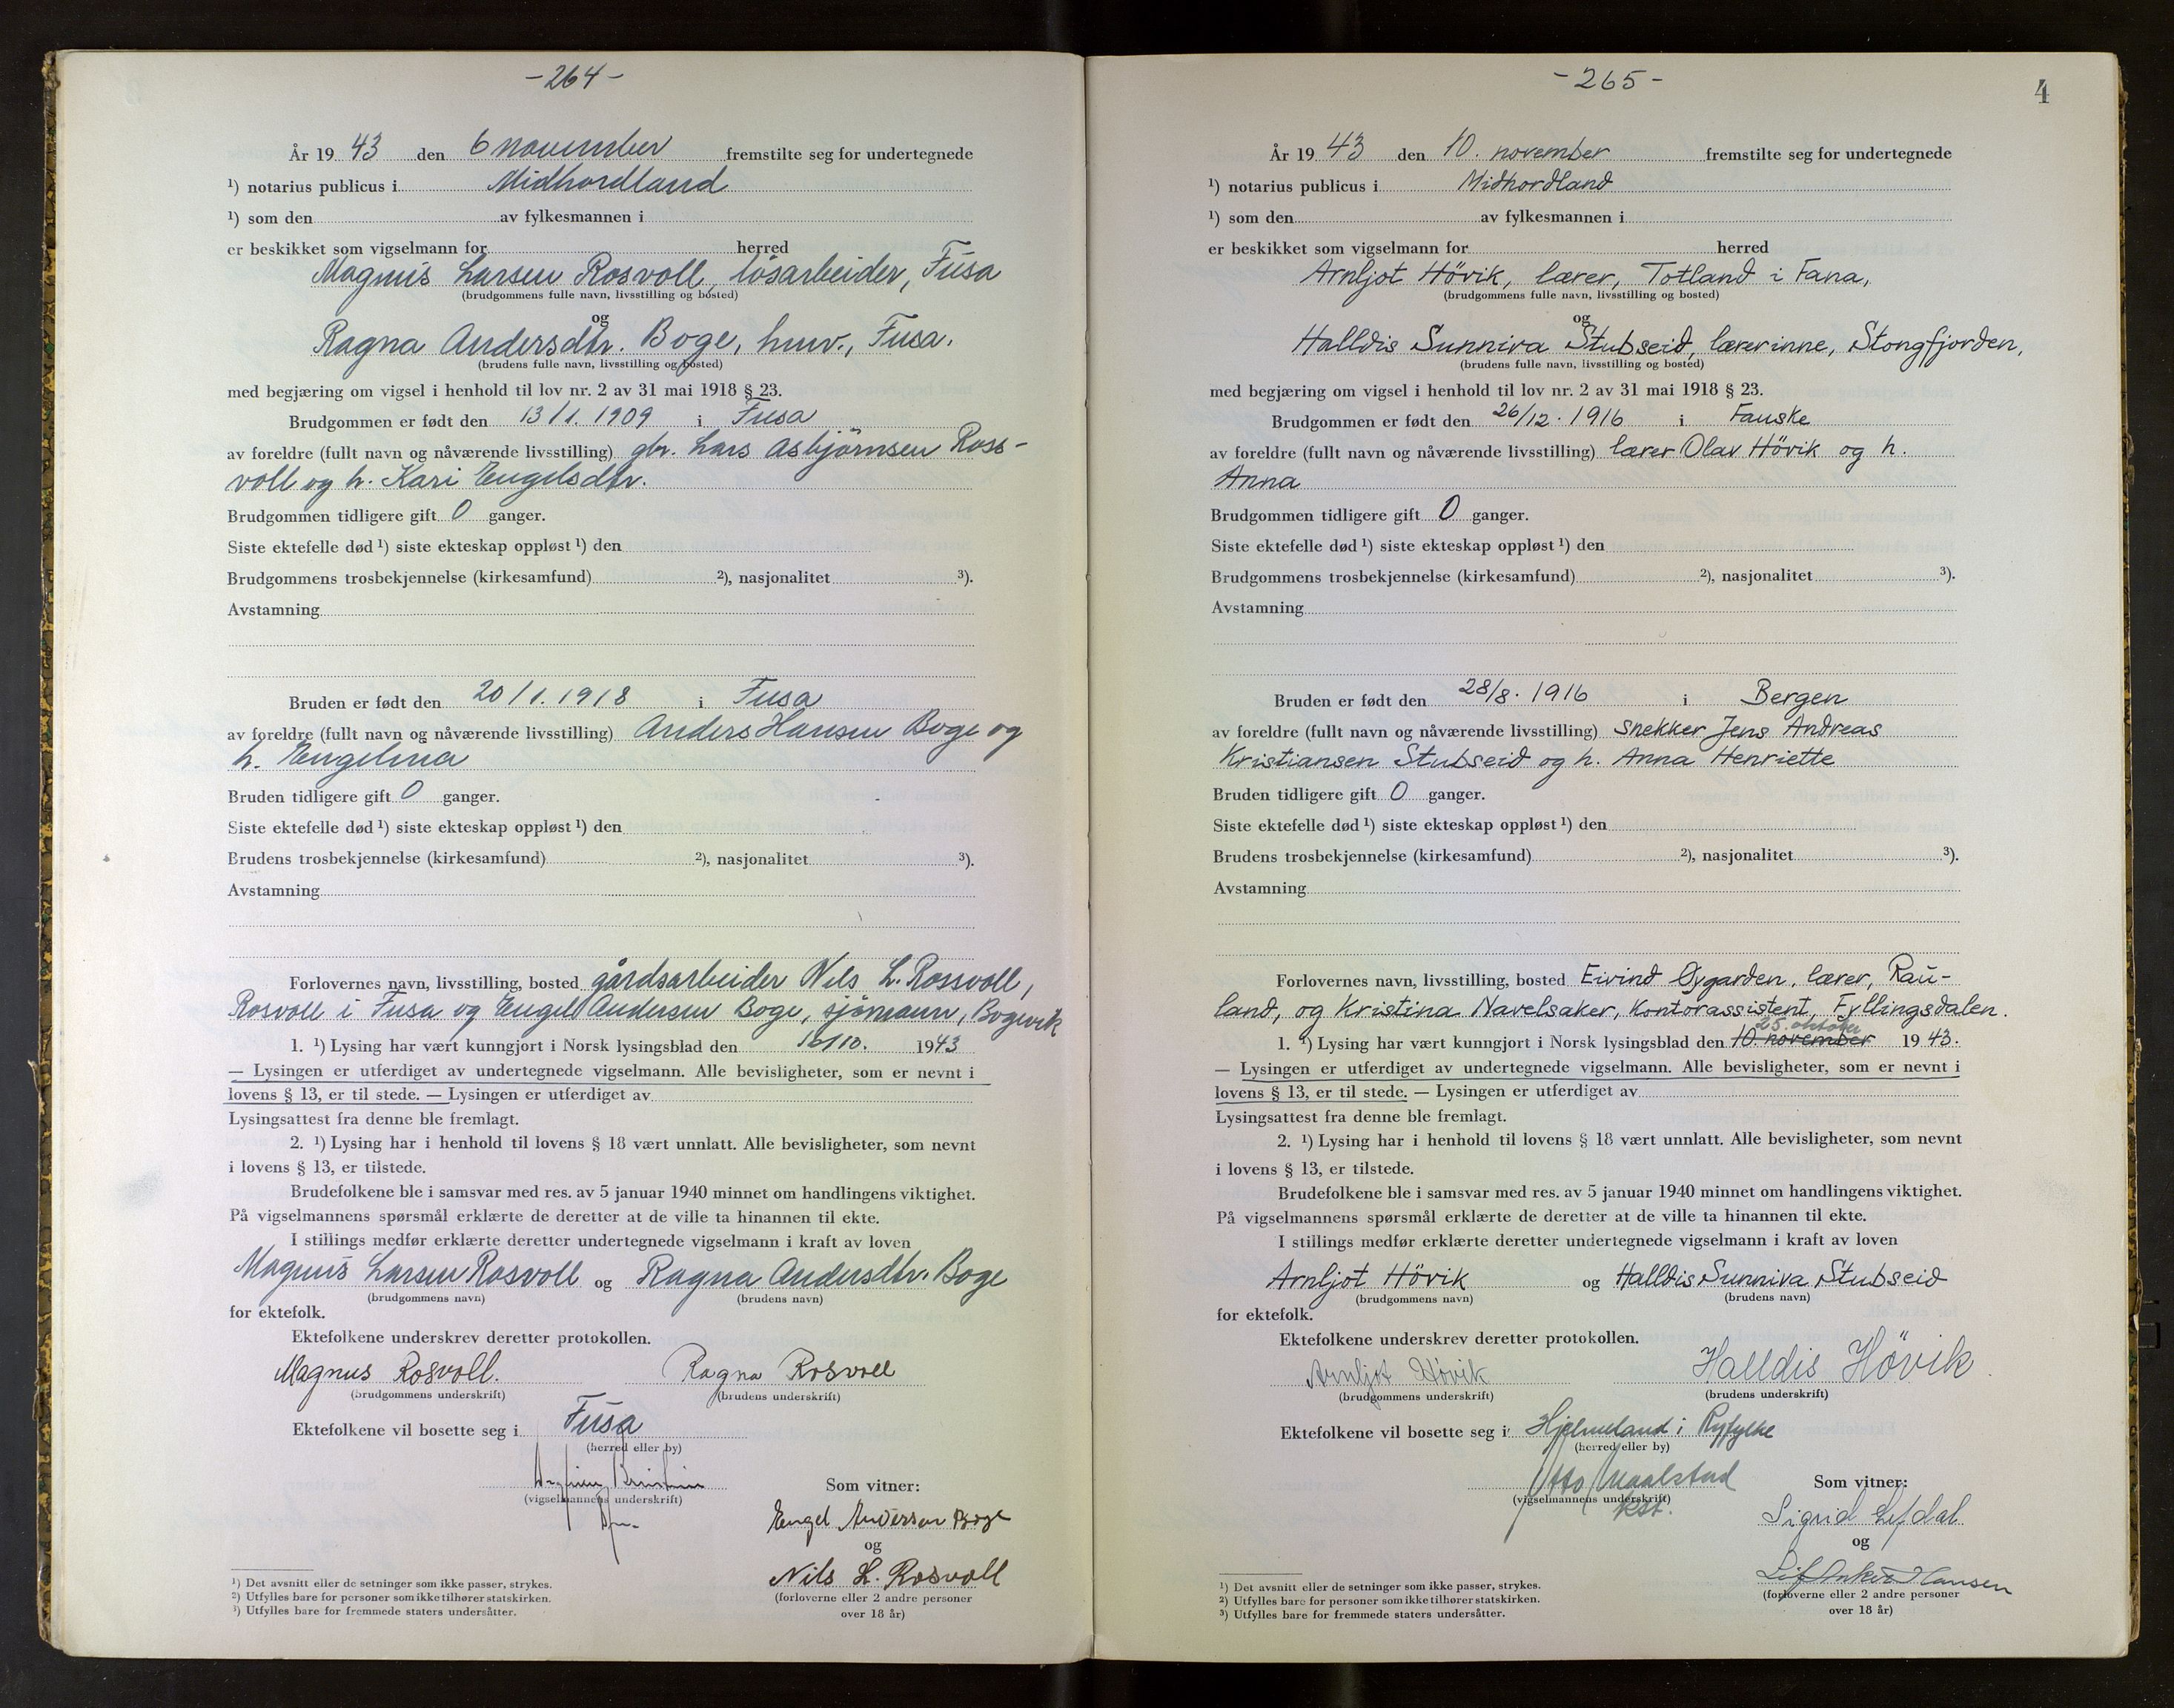 -264-
År 19 43 den 6 november fremstilte seg for undertegnede
¹) notarius publicus i Midhordland
¹) som den av fylkesmannen i
er beskikket som vigselmann for herred
Magnus Larsen Rosvoll, løsarbeider, Fusa
(brudgommens fulle navn, livsstilling og bosted)
og
Ragna Andersdtr. Boge, husv., Fusa.
(brudens fulle navn, livsstilling og bosted)
med begjæring om vigsel i henhold til lov nr. 2 av 31 mai 1918 § 23.
Brudgommen er født den 13/1. 1909 i Fusa
av foreldre (fullt navn og nåværende livsstilling) gbr. Lars Asbjörnsen Ross-
voll og h. Kari Engelsdtr.
Brudgommen tidligere gift 0 ganger.
Siste ektefelle død ¹) siste ekteskap oppløst ¹) den
Brudgommens trosbekjennelse (kirkesamfund) ²), nasjonalitet ³).
Avstamning
Bruden er født den 20/1. 1918 i Fusa
av foreldre (fullt navn og nåværende livsstilling) Anders Hansen Boge og
h. Engelina
Bruden tidligere gift 0 ganger.
Siste ektefelle død ¹) siste ekteskap oppløst ¹) den
Brudens trosbekjennelse (kirkesamfund) ²), nasjonalitet ³).
Avstamning
Forlovernes navn, livsstilling, bosted gårdsarbeider Nils L. Rossvoll,
Rosvoll i Fusa og Engel Andersen Boge, sjömann, Bogevik
1. ¹) Lysing har vært kunngjort i Norsk lysingsblad den 16/10. 1943
— Lysingen er utferdiget av undertegnede vigselmann. Alle bevisligheter, som er nevnt i
lovens § 13, er til stede. — Lysingen er utferdiget av
Lysingsattest fra denne ble fremlagt.
2. ¹) Lysing har i henhold til lovens § 18 vært unnlatt. Alle bevisligheter, som nevnt
i lovens § 13, er tilstede.
Brudefolkene ble i samsvar med res. av 5 januar 1940 minnet om handlingens viktighet.
På vigselmannens spørsmål erklærte de deretter at de ville ta hinannen til ekte.
I stillings medfør erklærte deretter undertegnede vigselmann i kraft av loven
Magnus Larsen Rosvoll og Ragna Andersdtr. Boge
(brudgommens navn) (brudens navn)
for ektefolk.
Ektefolkene underskrev deretter protokollen.
Magnus Rosvoll. Ragna Rosvoll
(brudgommens underskrift) (brudens underskrift)
Ektefolkene vil bosette seg i Fusa
(herred eller by)
(vigselmannens underskrift)
Som vitner:
Engel Anderson Boge
og
Nils L. Rosvoll
(forloverne eller 2 andre personer
over 18 år)
¹) Det avsnitt eller de setninger som ikke passer, strykes.
²) Utfylles bare for personer som ikke tilhører statskirken.
³) Utfylles bare for fremmede staters undersåtter.
-265-
4
År 19 43 den 10. november fremstilte seg for undertegnede
¹) notarius publicus i Midhordland
¹) som den av fylkesmannen i
er beskikket som vigselmann for herred
Arnljot Hövik, lærer, Totland i Fana,
(brudgommens fulle navn, livsstilling og bosted)
og
Halldis Sunniva Stubseid, lærerinne, Stongfjorden,
(brudens fulle navn, livsstilling og bosted)
med begjæring om vigsel i henhold til lov nr. 2 av 31 mai 1918 § 23.
Brudgommen er født den 26/12. 1916 i Fauske
av foreldre (fullt navn og nåværende livsstilling) lærer Olav Hövik og h.
Anna
Brudgommen tidligere gift 0 ganger.
Siste ektefelle død ¹) siste ekteskap oppløst ¹) den
Brudgommens trosbekjennelse (kirkesamfund) ²), nasjonalitet ³).
Avstamning
Bruden er født den 28/8. 1916 i Bergen
av foreldre (fullt navn og nåværende livsstilling) snekker Jens Andreas
Kristiansen Stubseid og h. Anna Henriette
Bruden tidligere gift 0 ganger.
Siste ektefelle død ¹) siste ekteskap oppløst ¹) den
Brudens trosbekjennelse (kirkesamfund) ²), nasjonalitet ³).
Avstamning
Forlovernes navn, livsstilling, bosted Eivind Øygarden, lærer, Rau-
land, og Kristina Navelsaker, kontorassistent, Fyllingsdalen.
25. oktober
1. ¹) Lysing har vært kunngjort i Norsk lysingsblad den 10. november 19 43.
— Lysingen er utferdiget av undertegnede vigselmann. Alle bevisligheter, som er nevnt i
lovens § 13, er til stede. — Lysingen er utferdiget av
Lysingsattest fra denne ble fremlagt.
2. ¹) Lysing har i henhold til lovens § 18 vært unnlatt. Alle bevisligheter, som nevnt
i lovens § 13, er tilstede.
Brudefolkene ble i samsvar med res. av 5 januar 1940 minnet om handlingens viktighet.
På vigselmannens spørsmål erklærte de deretter at de ville ta hinannen til ekte.
I stillings medfør erklærte deretter undertegnede vigselmann i kraft av loven
Arnljot Hövik og Halldis Sunniva Stubseid
(brudgommens navn) (brudens navn)
for ektefolk.
Ektefolkene underskrev deretter protokollen.
Arnljot Hövik Halldis Hövik
(brudgommens underskrift) (brudens underskrift)
Ektefolkene vil bosette seg i Hjelmeland i Ryfylke
(herred eller by)
Otto Maalstad
(vigselmannens underskrift)
kst.
Som vitner:
Sigrid
og
Hansen
(forloverne eller 2 andre personer
over 18 år)
¹) Det avsnitt eller de setninger som ikke passer, strykes.
²) Utfylles bare for personer som ikke tilhører statskirken.
³) Utfylles bare for fremmede staters undersåtter.